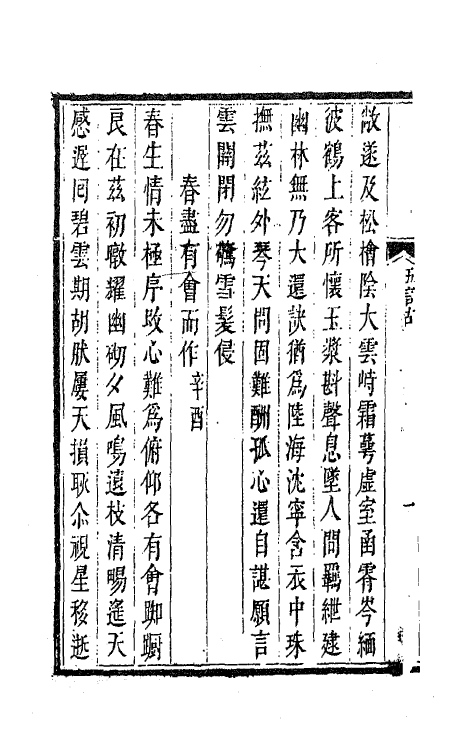 敞遂及松檜陰大雲峙霜蕚虛室函霄岑緬
彼鶴上客所懷玉漿斟聲息墜人間羈紲建
幽林無乃大還訣猶為陸海沈寧含衣中珠
撫茲絃外琴天問固難酬孤心還自諶願言
雲關閉勿驚雪髮侵
春盡有會而作 辛酉
春生情未極序改心難為俯仰各有會踟躕
良在茲初暾耀幽砌夕風鳴遠枝清暘遙天
感遲回碧雲期胡朕屢天損耿尒視星移逝